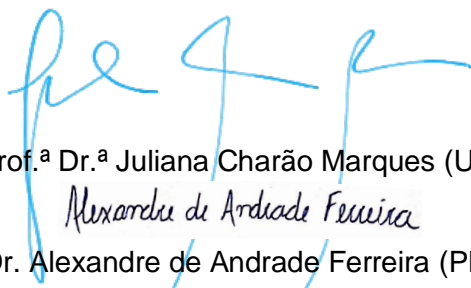 rof.ª Dr.ª Juliana Charão Marques (U
Alexandre de Andrade Ferreira
Dr. Alexandre de Andrade Ferreira (P